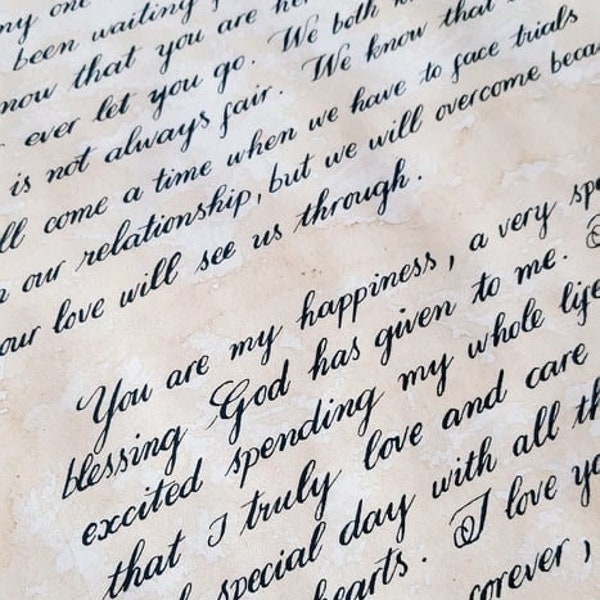 my one
been waiting
now that you are he
ever let you go. We both k
is not always fair. We know that
ll come a time when we have to face trials
n our relationship, but we will overcome becau
our love will see us through.
You are my happiness, a very spe
blessing God has given to me.
excited spending my whole life
that I truly love and care
special day with all th
hearts. I love yo
forever,